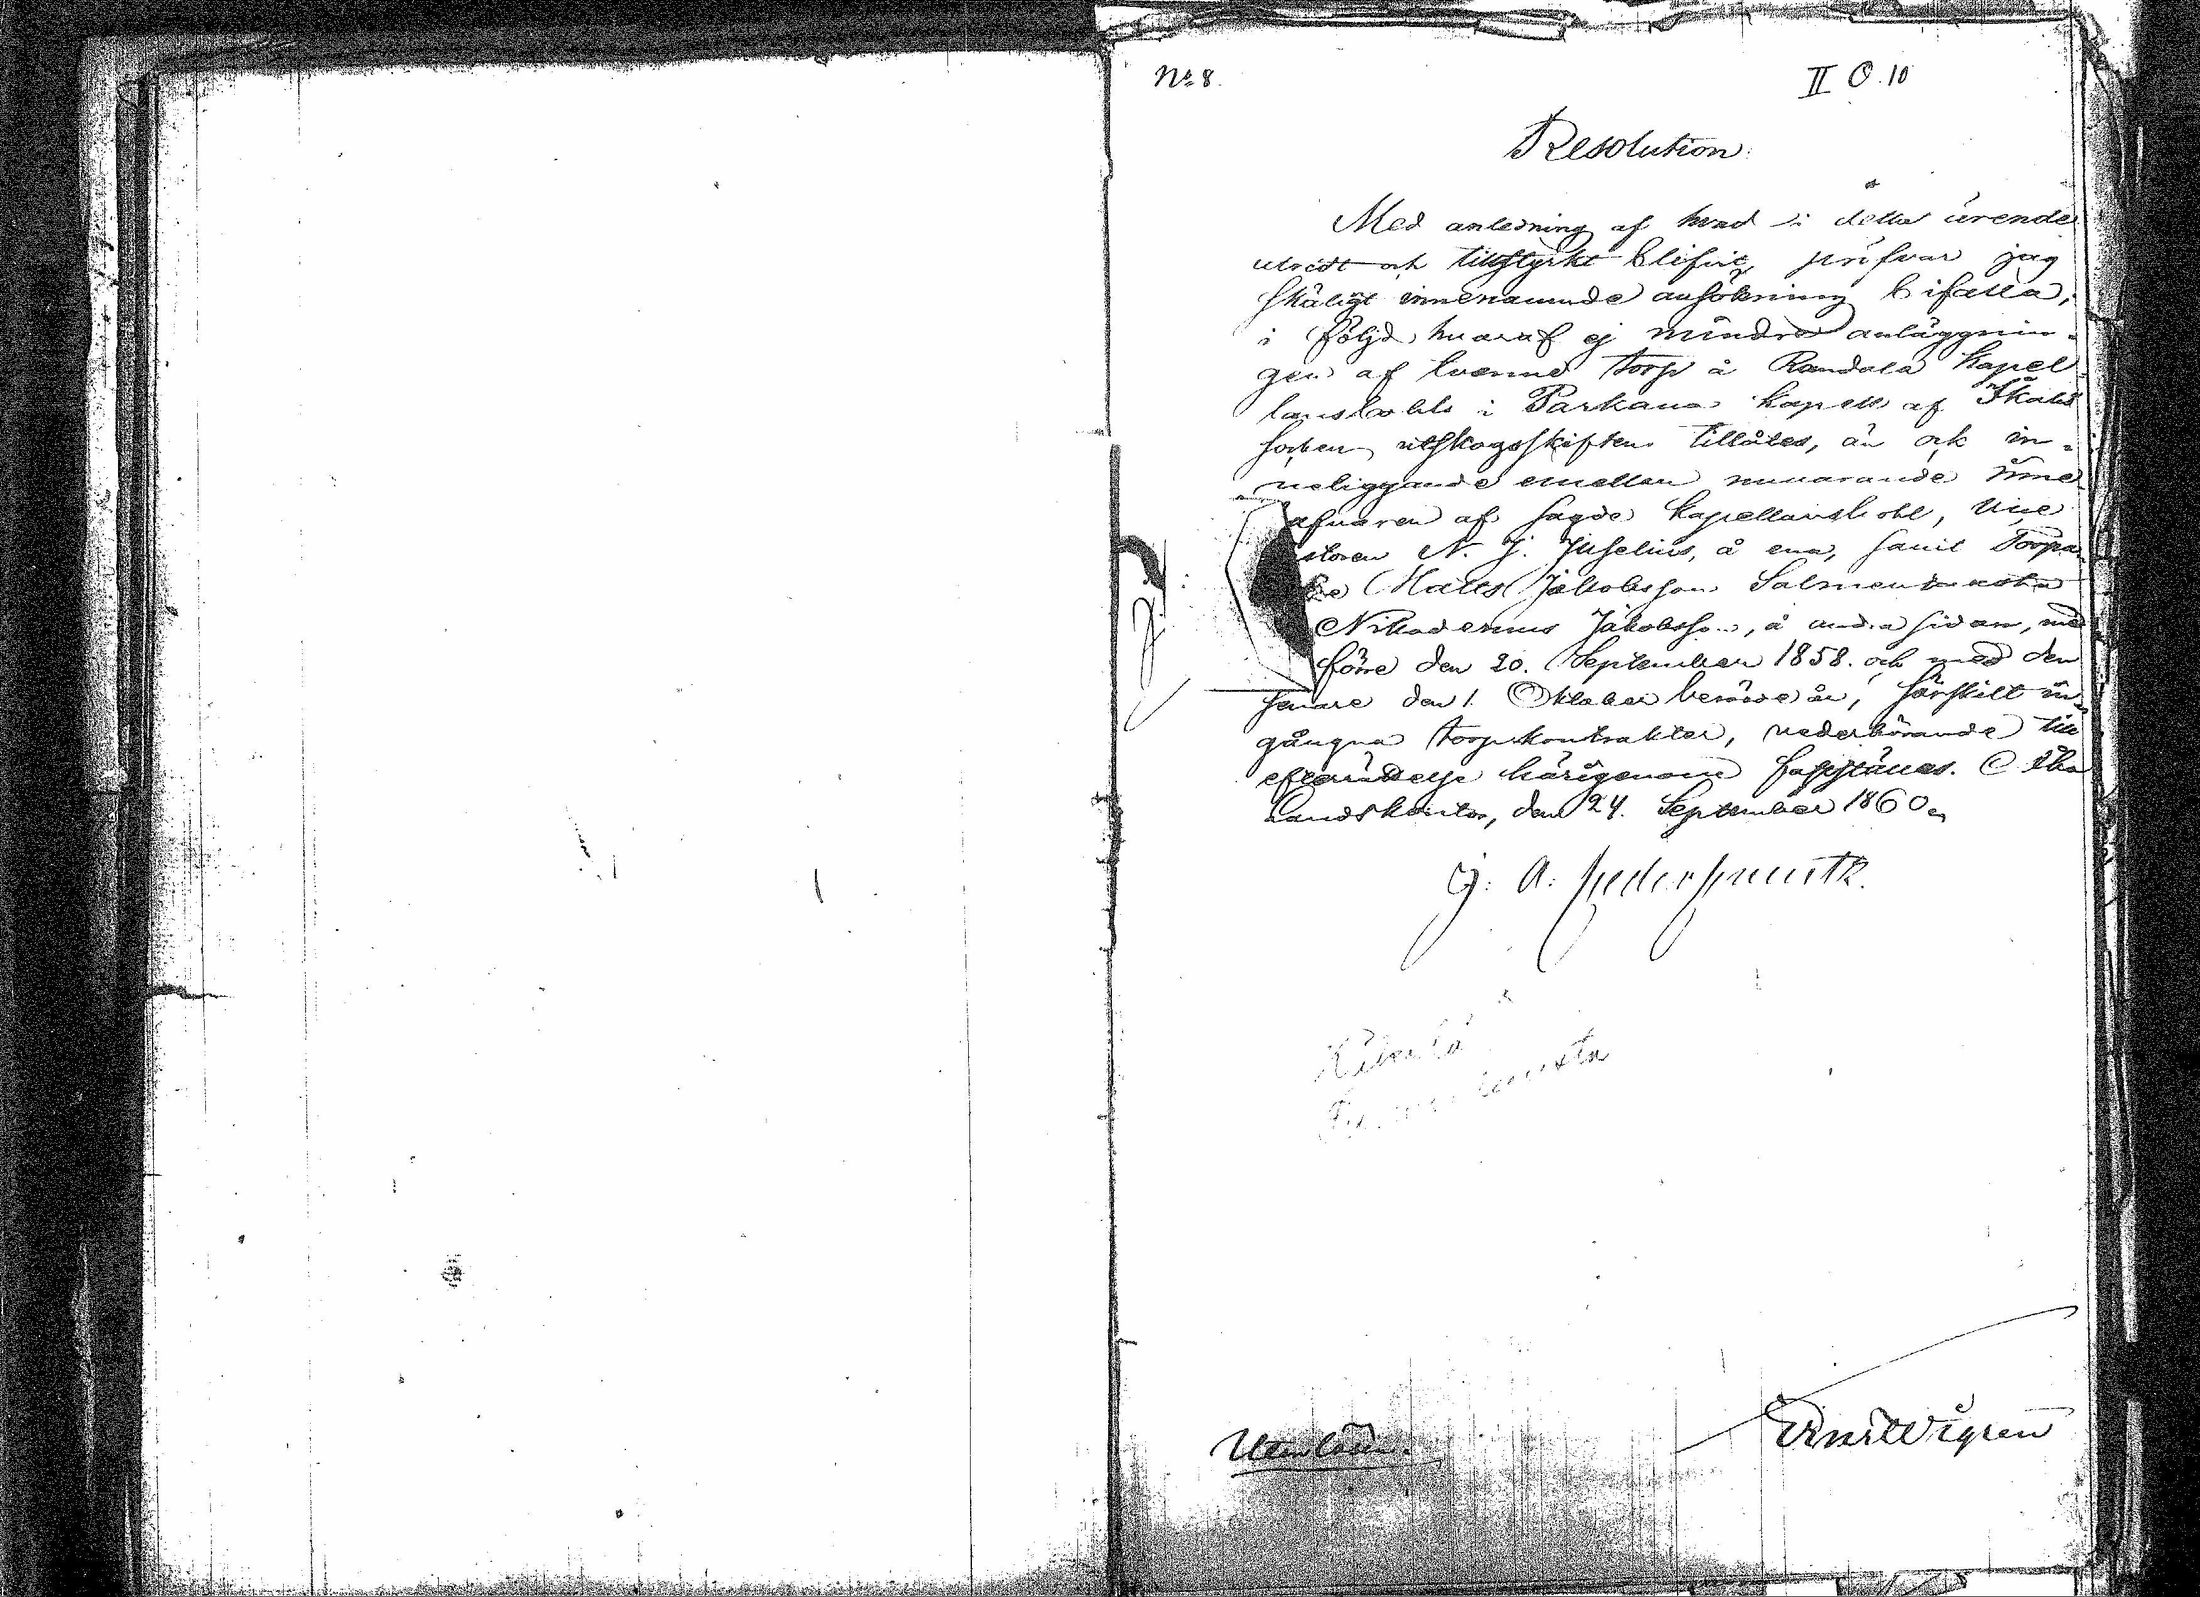 No 8.
II O. 10
Resolution
Med anledning af hvad i detta ärende
utredt och tillstyrkt blifvit, pröfvar jag
skäligt innenämnde ansökning bifalla;
i följd hvaraf ej mindre anläggnin-
gen af tvenne torp å Randala Kapel-
lansbohls i Parkano Kapell af Ikalis
socken utskogsskiften tillåtes, än ock in-
neliggande emellan nuvarande inne-
hafvaren af sagde Kapellansbohl, Vice
Pastoren N. J. Juselius, å ena, samt Torpa-
Matts Jakobsson Salmenkanta
Nikodemus Jakobsson, å andra sidan, med
förre den 20. September 1858. och med den
senare den 1. Oktober berörde år, särskilt in-
gångna torpkontrakter, vederbörande till
efterrättelse härigenom fastställes. Åbo
Landskontor, den 24. September 1860
Emil Wigren